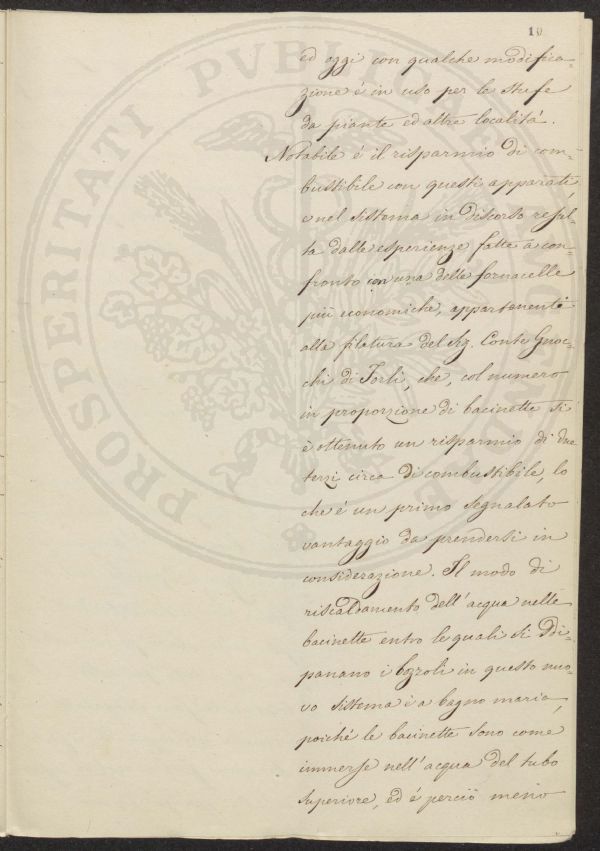 10
ed oggi con qualche modifica-
zione è in uso per le stufe
da piante ed altre località.
Notabile è il risparmio di com-
bustibile con questi apparati,
e nel sistema in discorso resul-
ta dalle esperienze fatte a con-
fronto con una delle fornacelle
più economiche, appartenente
alla filatura del Sig. Conte Gnoc-
chi di Forlì, che, col numero
in proporzione di bacinette si
è ottenuto un risparmio di due
terzi circa di combustibile, lo
che è un primo segnalato
vantaggio da prendersi in
considerazione. Il modo di
riscaldamento dell'acqua nelle
bacinette entro le quali si ddi-
panano i bozzoli in questo nuo-
vo sistema è a bagno maria,
poiché le bacinette sono come
immerse nell'acqua del tubo
superiore, ed é perciò meno
PROSPERITATI PVBLICAE